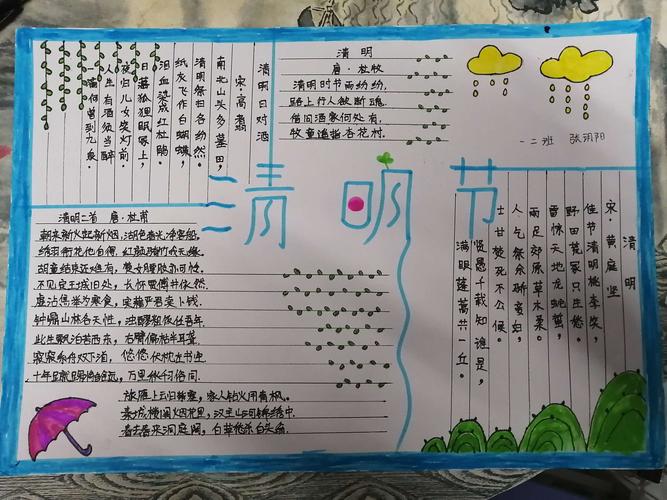 清明日对酒
宋·高翥
南北山头多墓田,
清明祭扫各纷然。
纸灰飞作白蝴蝶,
泪血染成红杜鹃。
日落狐狸眠冢上,
夜归儿女笑灯前。
人生有酒须当醉
一滴何曾到九泉。
清明
唐·杜牧
清明时节雨纷纷,
路上行人欲断魂。
借问酒家何处有,
牧童遥指杏花村。
一二班 张 阳
清明节
清明二首 唐·杜甫
朝来新火起新烟,湖色春光净客船。
绣羽衔花他自得,红颜骑竹我无缘。
胡童结束还难有,楚女腰肢亦可怜。
不见定王城旧处,长怀贾傅井依然。
虚沾焦举为寒食,实藉严君卖卜钱。
钟鼎山林各天性,浊醪粗饭任吾年。
此生飘泊苦西东,右臂偏枯半耳聋。
寂寂系舟双下泪,悠悠伏枕左书空。
十年蹴踘将雏远,万里秋千习俗同。
旅雁上云归紫塞,家人钻火用青枫。
秦城楼阁烟花里,汉主山河锦绣中。
春去春来洞庭阔,白苹愁杀白头翁。
清明
宋·黄庭坚
佳节清明桃李笑,
野田荒冢只生愁。
雷惊天地龙蛇蛰,
雨足郊原草木柔。
人气祭余骄妾妇,
士甘焚死不公侯。
贤愚千载知谁是,
满眼蓬蒿共一丘。